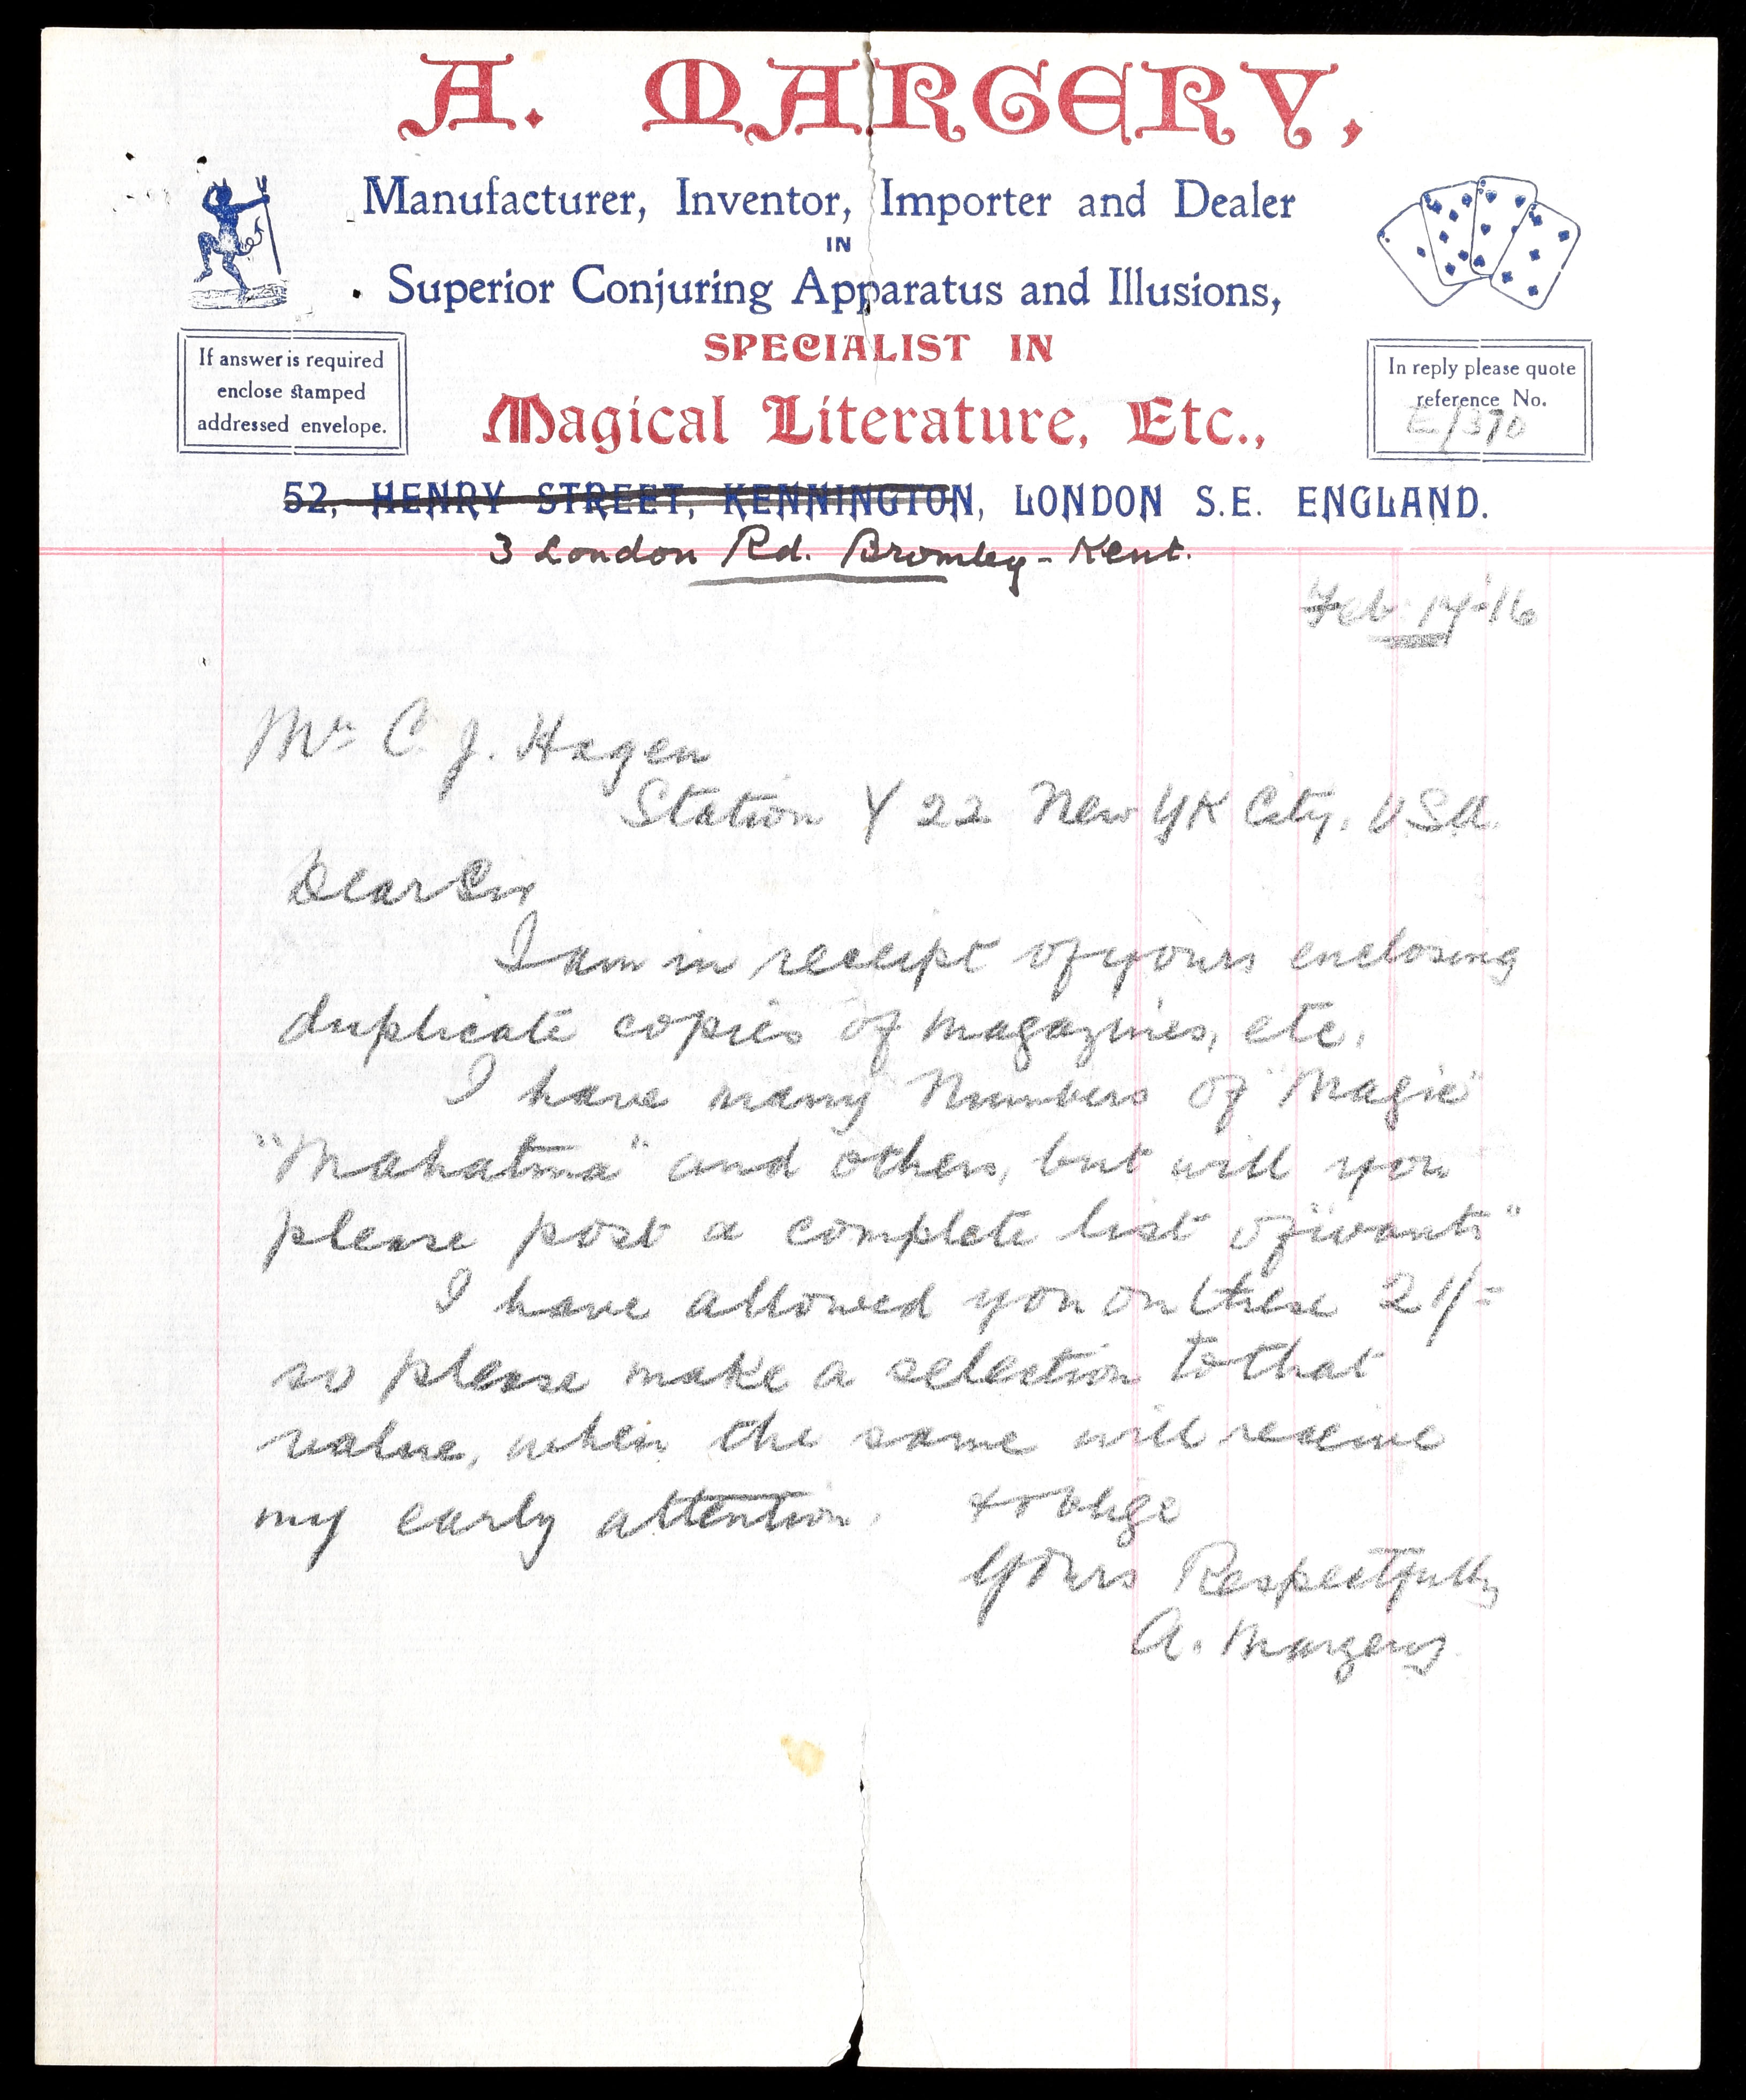 A. MARGERY,
Manufacturer, Inventor, Importer and Dealer
IN
Superior Conjuring Apparatus and Illusions,
SPECIALIST IN
Magical Literature, Etc.,
If answer is required
enclose stamped
addressed envelope.
In reply please quote
reference No.
E/370
52, HENRY STREET, KENNINGTON, LONDON S.E. ENGLAND.
3 London Rd. Bromley - Kent.
Feb 14-16
Mr C. J. Hagen
Station Y 22 New YK City, USA.
Dear Sir
I am in receipt of yours enclosing
duplicate copies of magazines, etc.
I have many Numbers of "Magic"
"Mahatma" and others, but will you
please post a complete list of "wants"
I have allowed you on these 21/=
so please make a selection to that
value, when the same will receive
my early attention, & oblige
Yours Respectfully
A. Margery